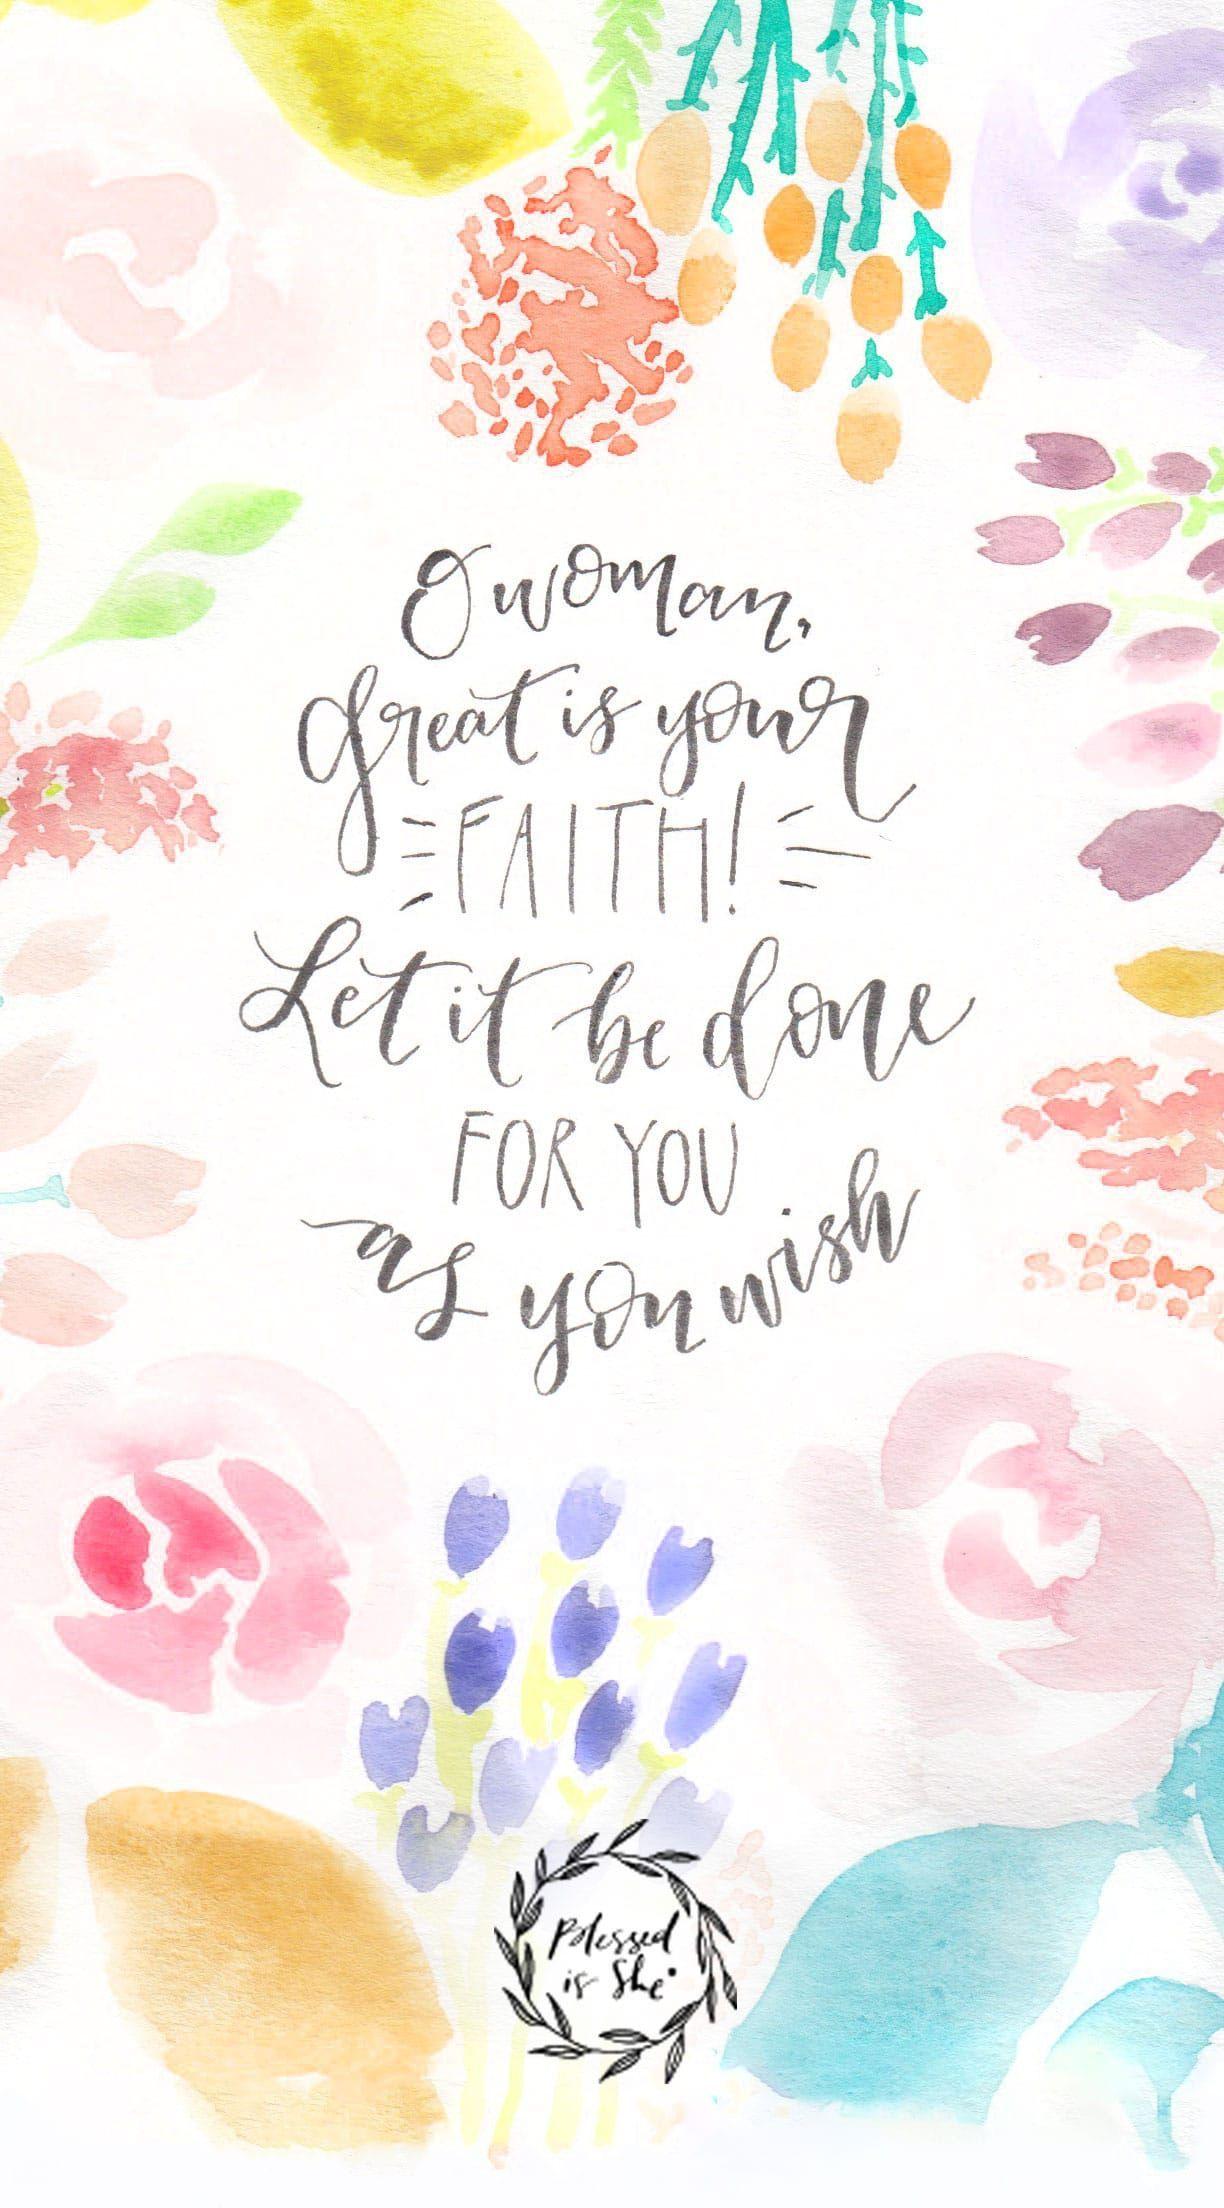 O woman,
great is your
FAITH!
Let it be done
FOR YOU
as you wish
Blessed
is She